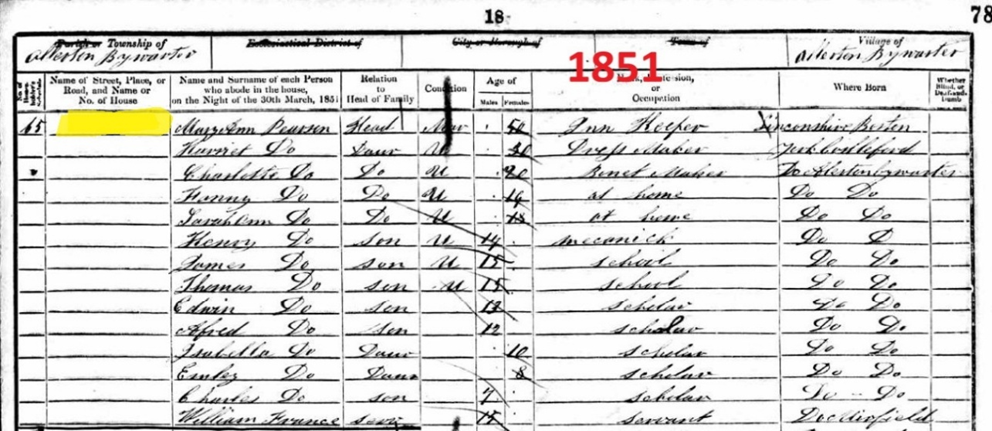 18 78
Parish or Township of Ecclesiastical District of City or Borough of Town of Village of
Allerton Bywarter Allerton Bywarter
1851
Name of Street, Place, or Road, and Name or No. of House
Name and Surname of each Person who abode in the house, on the Night of the 30th March, 1851
Relation to Head of Family
Condition
Age of
Males Females
Occupation
Where Born
65 Mary Ann Pearson Head 50 Inn Keeper Linconshire Bosten
Harriet Do Daur U Dress Maker York
Charlotte Do Do U 20 Bonet Maker Do Allerton bywarter
Fanny Do Do U at home Do Do
Sarah Ann Do Do U 18 at home Do Do
Henry Do son U mecanick Do D
James Do son U 15 school Do Do
Thomas Do son U 15 school Do Do
Edwin Do son 13 scholar Do Do
Alfred Do son 12 scholar Do Do
Isabella Do Daur 10 scholar Do Do
Emley Do Daur 8 scholar Do Do
Charles Do son 7 scholar Do Do
William France serv servant Do Mirfield